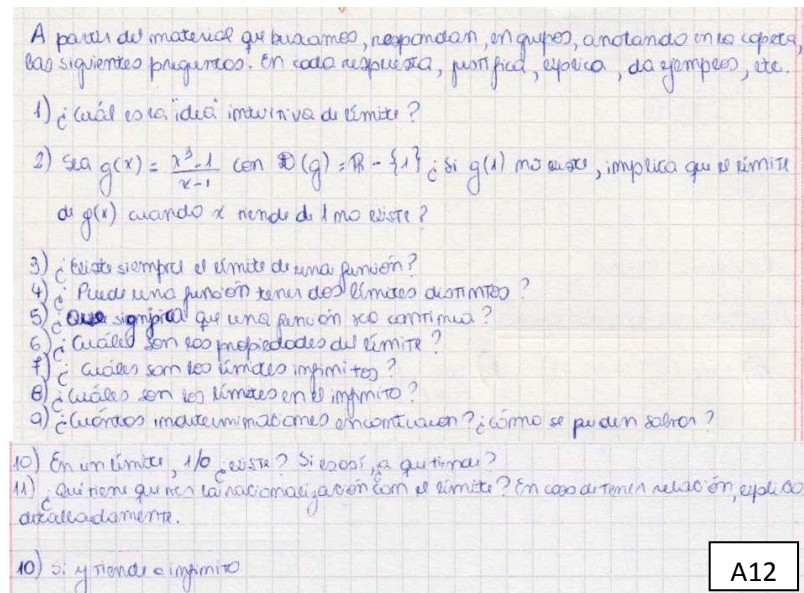 A partir del material que buscamos, respondan, en grupos, anotando en la carpeta,
las siguientes preguntas. En cada respuesta, justifica, explica, da ejemplos, etc.
1) ¿Cuál es la "idea" intuitiva de límite?
2) Sea g(x) = x³-1/x-1 con D(g) = R - {1} ¿Si g(1) no existe, implica que el límite
de g(x) cuando x tiende a 1 no existe?
3) ¿Existe siempre el límite de una función?
4) ¿Puede una función tener dos límites distintos?
5) ¿Que significa que una función sea continua?
6) ¿Cuáles son las propiedades del límite?
7) ¿Cuáles son los límites infinitos?
8) ¿Cuáles son los límites en el infinito?
9) ¿Cuántas indeterminaciones encontraron? ¿Cómo se pueden salvar?
10) En un límite, 1/0 ¿existe? Si es así, a que tiende?
11) ¿Qué tiene que ver la racionalización con el límite? En caso de tener relación, explica
detalladamente.
10) Si y tiende a infinito
A12